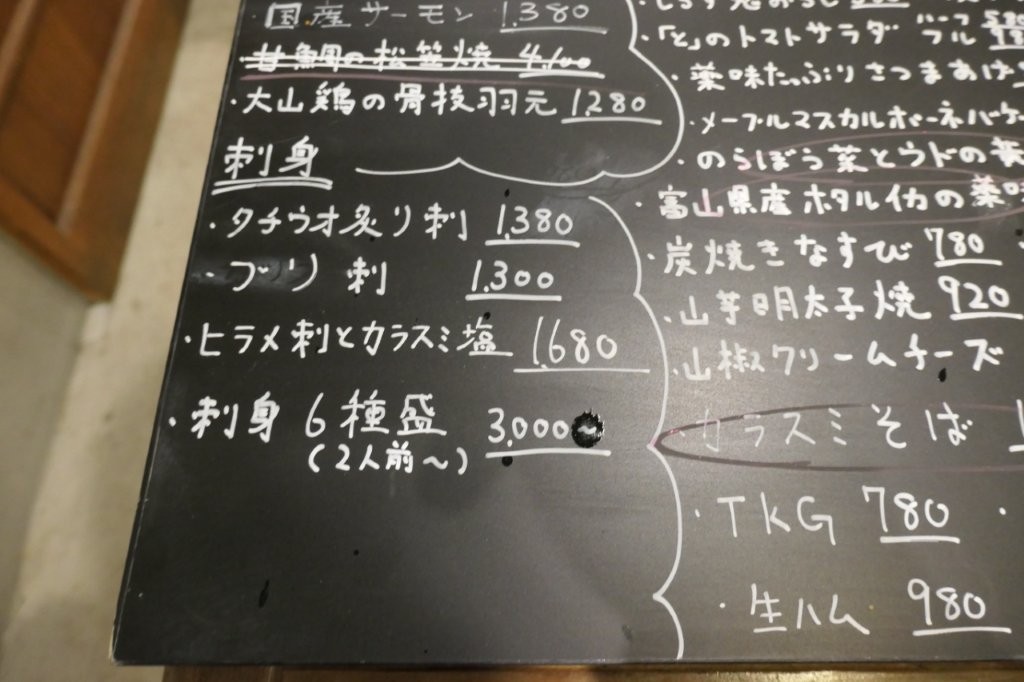 ・国産サーモン 1,380
甘鯛の松笠焼 4,100
・大山鶏の骨抜羽元 1,280
刺身
・タチウオ炙り刺 1,380
・ブリ刺 1,300
・ヒラメ刺とカラスミ塩 1,680
・刺身6種盛 3,000
(2人前〜)
・「と」のトマトサラダ ハーフ
フル
・薬味たっぷりさつまあげ
・メープルマスカルポーネバゲ
・のらぼう菜とウドの
・富山県産ホタルイカの薬味
・炭焼きなすび 780
・山芋明太子焼 920
・山椒クリームチーズ
・カラスミそば
・TKG 780
・生ハム 980